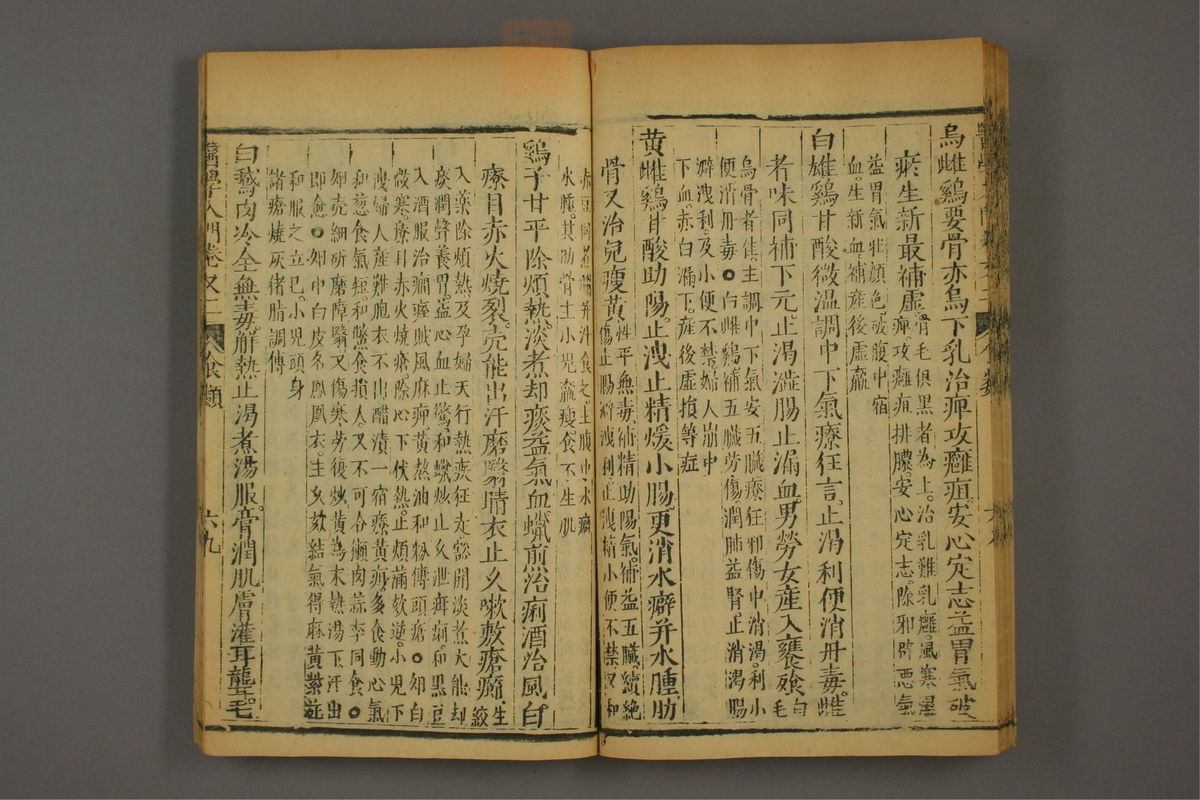 烏雌鷄要骨亦烏下乳治痺攻癰疽安心定志益胃氣破
瘀生新最補虛骨毛俱黑者為上治乳難乳癰風寒濕
痺攻癰疽排膿安心定志除邪辟惡氣
益胃氣壯顏色破腹中宿
血生新血補產後虛羸
白雄鷄甘酸微溫調中下氣療狂言止渴利便消丹毒雌
者味同補下元止渴澁腸止漏血男勞女產入饔飱白毛
烏骨者佳主調中下氣安五臟療狂邪傷中消渴利小
便消丹毒○白雌鷄補五臟勞傷潤肺益腎止消渴腸
澼洩利及小便不禁婦人崩中
下血赤白漏下產後虛損等症
黃雌鷄甘酸助陽止洩止精煖小腸更消水癖并水腫肋
骨又治兒瘦黃性平無毒補精助陽氣補益五臟續絕
傷止腸澼洩利止洩精小便不禁又和
赤豆同煮 并汁食之主腹中水癖
水腫其肋骨主小兒羸瘦食不生肌
鷄子甘平除煩熱淡煮却痰益氣血蠟煎治痢酒治風白
療目赤火燒裂壳能出汗磨翳睛衣止久嗽敷瘡癧生絞
入藥除煩熱及孕婦天行熱疾狂走豁開淡煮大能却
痰潤聲養胃益心血止驚和蠟炒止久泄痢和黑豆
入酒服治癇痙賊風麻痺黃熬油和粉傅頭瘡○卵白
微寒療目赤火燒瘡除心下伏熱止煩滿欬逆小兒下
洩婦人產難胞衣不出醋漬一宿療黃疸多食動心氣
和葱食氣短和鱉食損人又不可合獺肉蒜李同食○
卵壳細研磨障翳又傷寒勞復炒黃為末熱湯下汗出
即愈○卵中白皮名鳳凰衣主久欬結氣得麻黃紫菀
和服之立已小兒頭身
諸瘡燒灰猪脂調傅
白鵝肉冷全無毒解熱止渴煮湯服膏潤肌膚灌耳聾毛
醫學入門卷之二 食類 六九